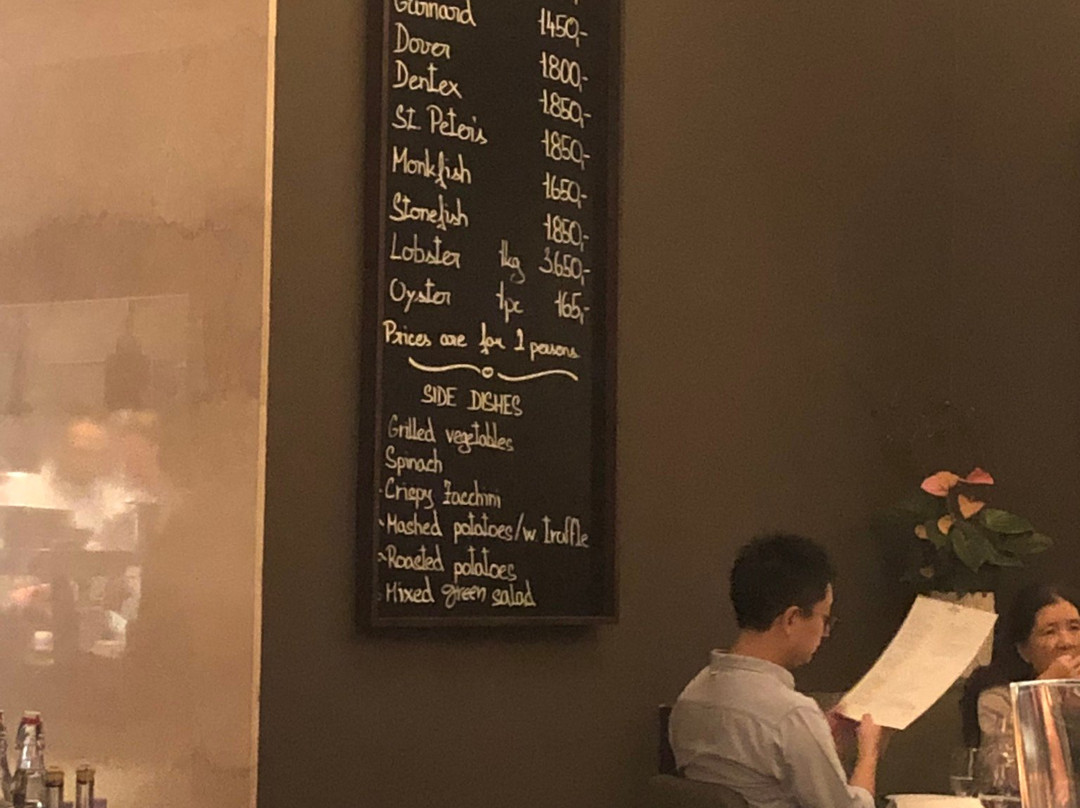 Gurnard 1450,-
Dover 1800,-
Dentex 1850,-
St. Peter's 1850,-
Monkfish 1650,-
Stonefish 1850,-
Lobster 1kg 3650,-
Oyster 1pc 165,-
Prices are for 2 persons
SIDE DISHES
Grilled vegetables
Spinach
Crispy Zacchini
Mashed potatoes/w truffle
Roasted potatoes
Mixed green salad